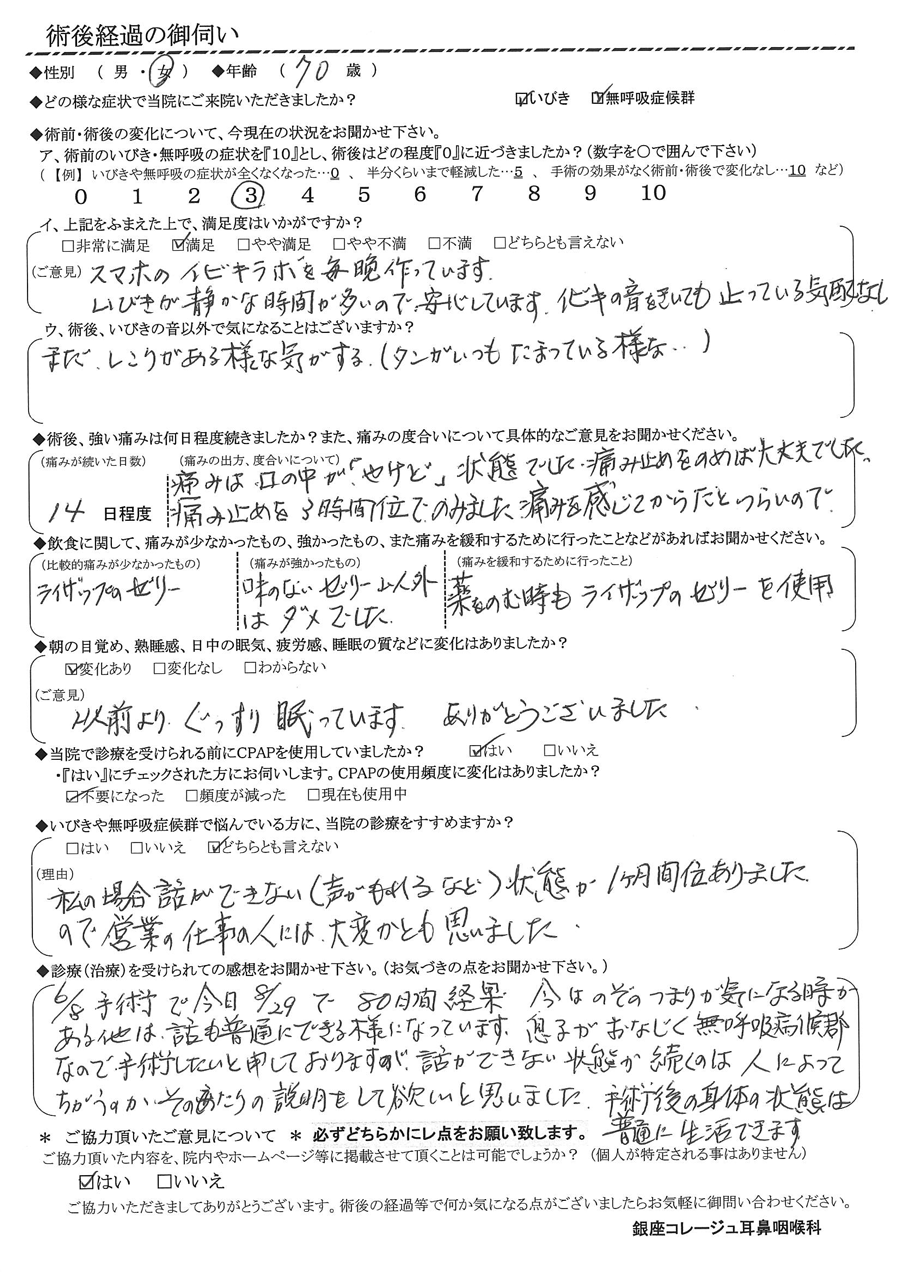 術後経過の御伺い
◆性別 ( 男 ・ 女 ) ◆年齢 ( 70 歳 )
◆どの様な症状で当院にご来院いただきましたか? ☑いびき ☑無呼吸症候群
◆術前・術後の変化について、今現在の状況をお聞かせ下さい。
ア、術前のいびき・無呼吸の症状を『10』とし、術後はどの程度『0』に近づきましたか?(数字を〇で囲んで下さい)
(【例】 いびきや無呼吸の症状が全くなくなった…0 、 半分くらいまで軽減した…5 、 手術の効果がなく術前・術後で変化なし…10 など)
0 1 2 3 4 5 6 7 8 9 10
イ、上記をふまえた上で、満足度はいかがですか?
□非常に満足 ☑満足 □やや満足 □やや不満 □不満 □どちらとも言えない
(ご意見) スマホのイビキラボを毎晩作っています.
いびきが静かな時間が多いので安心しています. イビキの音をきいても止っている気配なし
ウ、術後、いびきの音以外で気になることはございますか?
まだ、しこりがある様な気がする.(タンがいつもたまっている様な...)
◆術後、強い痛みは何日程度続きましたか?また、痛みの度合いについて具体的なご意見をお聞かせください。
(痛みが続いた日数) (痛みの出方、度合いについて)
痛みは口の中が「やけど」状態でした. 痛み止めをのめば大丈夫でした.
14 日程度 痛み止めを3時間位でのみました. 痛みを感じてからだとつらいので.
◆飲食に関して、痛みが少なかったもの、強かったもの、また痛みを緩和するために行ったことなどがあればお聞かせください。
(比較的痛みが少なかったもの) (痛みが強かったもの) (痛みを緩和するために行ったこと)
ライザップのゼリー 味のないゼリー以外 薬をのむ時もライザップのゼリーを使用
はダメでした.
◆朝の目覚め、熟睡感、日中の眠気、疲労感、睡眠の質などに変化はありましたか?
☑変化あり □変化なし □わからない
(ご意見)
以前より. ぐっすり眠っています. ありがとうございました.
◆当院で診療を受けられる前にCPAPを使用していましたか? ☑はい □いいえ
・『はい』にチェックされた方にお伺いします。CPAPの使用頻度に変化はありましたか?
☑不要になった □頻度が減った □現在も使用中
◆いびきや無呼吸症候群で悩んでいる方に、当院の診療をすすめますか?
□はい □いいえ ☑どちらとも言えない
(理由)
私の場合話ができない(声がもれるなど)状態が1ヶ月間位ありました.
ので営業の仕事の人には大変かとも思いました.
◆診療(治療)を受けられての感想をお聞かせ下さい。(お気づきの点をお聞かせ下さい。)
6/8手術で今日8/29で80日間経果 今はのどのつまりが気になる時が
ある他は、話も普通にできる様になっています. 息子がおなじく無呼吸病候郡
なので手術したいと申しておりますのが、話ができない状態が続くのは人によって
ちがうのか、そのあたりの説明をして欲しいと思いました. 手術後の身体の状態は
普通に生活できます
* ご協力頂いたご意見について * 必ずどちらかにレ点をお願い致します。
ご協力頂いた内容を、院内やホームページ等に掲載させて頂くことは可能でしょうか? (個人が特定される事はありません)
☑はい □いいえ
ご協力いただきましてありがとうございます。術後の経過等で何か気になる点がございましたらお気軽に御問い合わせください。
銀座コレージュ耳鼻咽喉科